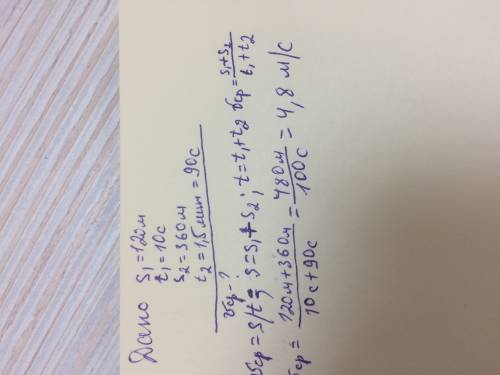 Дано S₁ = 120м
t₁ = 10с
S₂ = 360м
t₂ = 1,5мин = 90с
υср - ?
υср = S/t; S = S₁ + S₂; t = t₁ + t₂ υср = S₁ + S₂ / t₁ + t₂
υср = 120м + 360м / 10с + 90с = 480м / 100с = 4,8 м/с